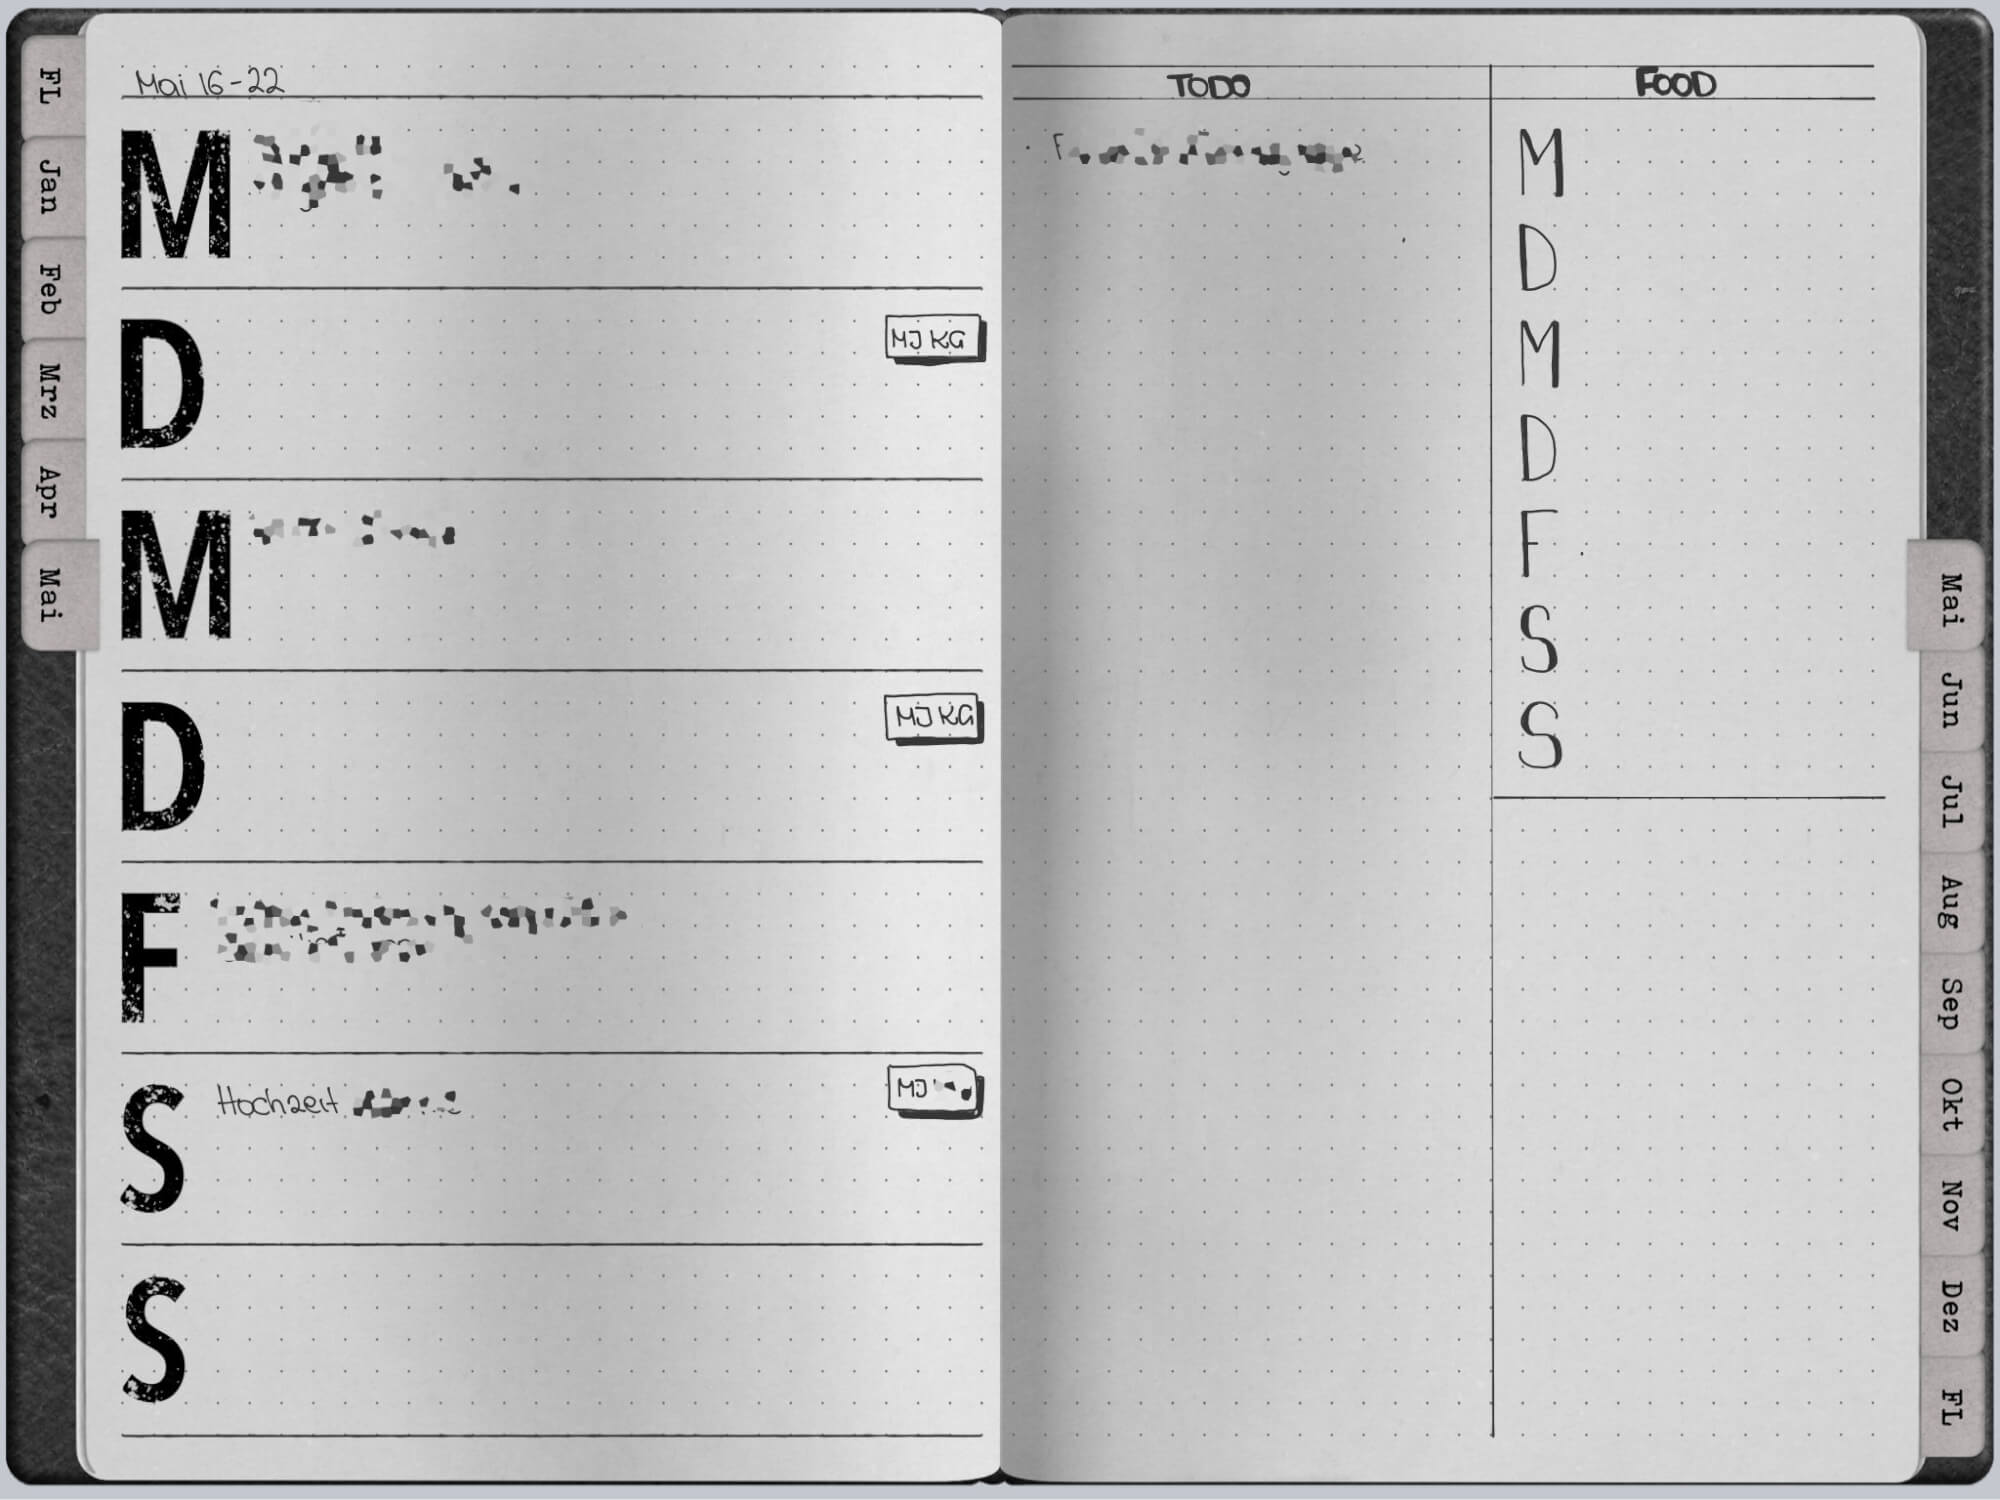 FL
Jan
Feb
Mrz
Apr
Mai
Mai 16-22
M
D
MJ KG
M
D
MJ KG
F
S Hochzeit
MJ
S
TODO
FOOD
M
D
M
D
F
S
S
Mai
Jun
Jul
Aug
Sep
Okt
Nov
Dez
FL